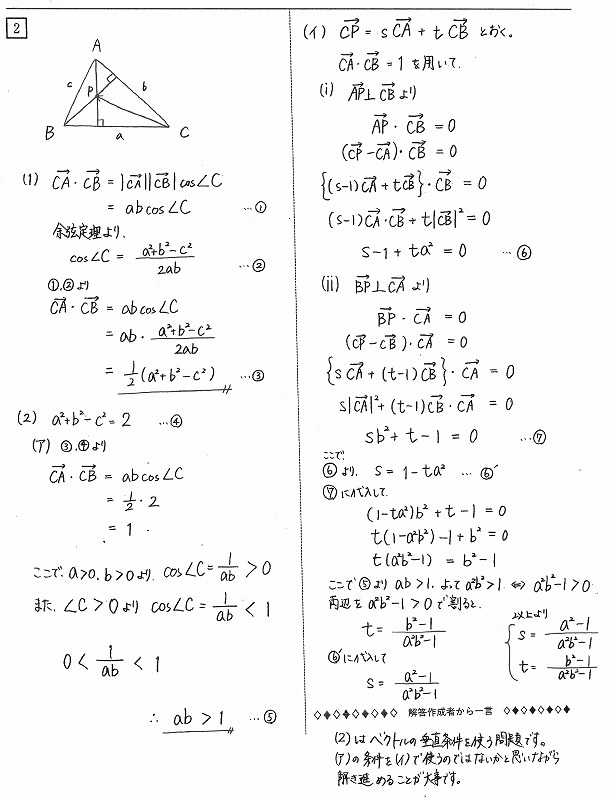 2
A
c
b
P
B
a
C
(1) CA・CB = |CA||CB|cos∠C
= ab cos∠C …①
余弦定理より、
cos∠C = (a²+b²-c²)/2ab …②
①,②より
CA・CB = ab cos∠C
= ab・(a²+b²-c²)/2ab
= 1/2(a²+b²-c²) …③
(2) a²+b²-c²=2 …④
(ア) ③,④より
CA・CB = ab cos∠C
= 1/2・2
= 1.
ここで、a>0, b>0より、cos∠C = 1/ab > 0
また、∠C>0より cos∠C = 1/ab < 1
0 < 1/ab < 1
∴ ab > 1 …⑤
(イ) CP = sCA + tCB とおく。
CA・CB = 1 を用いて、
(i) AP⊥CBより
AP・CB = 0
(CP-CA)・CB = 0
{(s-1)CA + tCB}・CB = 0
(s-1)CA・CB + t|CB|² = 0
s-1+ta² = 0 …⑥
(ii) BP⊥CAより
BP・CA = 0
(CP-CB)・CA = 0
{sCA + (t-1)CB}・CA = 0
s|CA|² + (t-1)CB・CA = 0
sb²+t-1 = 0 …⑦
ここで、
⑥より、s = 1-ta² …⑥´
⑦に代入して、
(1-ta²)b²+t-1=0
t(1-a²b²)-1+b²=0
t(a²b²-1) = b²-1
ここで⑤より ab>1, よって a²b²>1 ⇔ a²b²-1>0
両辺を a²b²-1>0 で割ると、
t = (b²-1)/(a²b²-1)
⑥´に代入して
s = (a²-1)/(a²b²-1)
以上より
s = (a²-1)/(a²b²-1)
t = (b²-1)/(a²b²-1)
◇◆◇◆◇◆◇◆◇ 解答作成者から一言 ◇◆◇◆◇◆◇
(2)はベクトルの垂直条件を使う問題です。
(ア)の条件を(イ)で使うのではないかと思いながら
解き進めることが大事です。